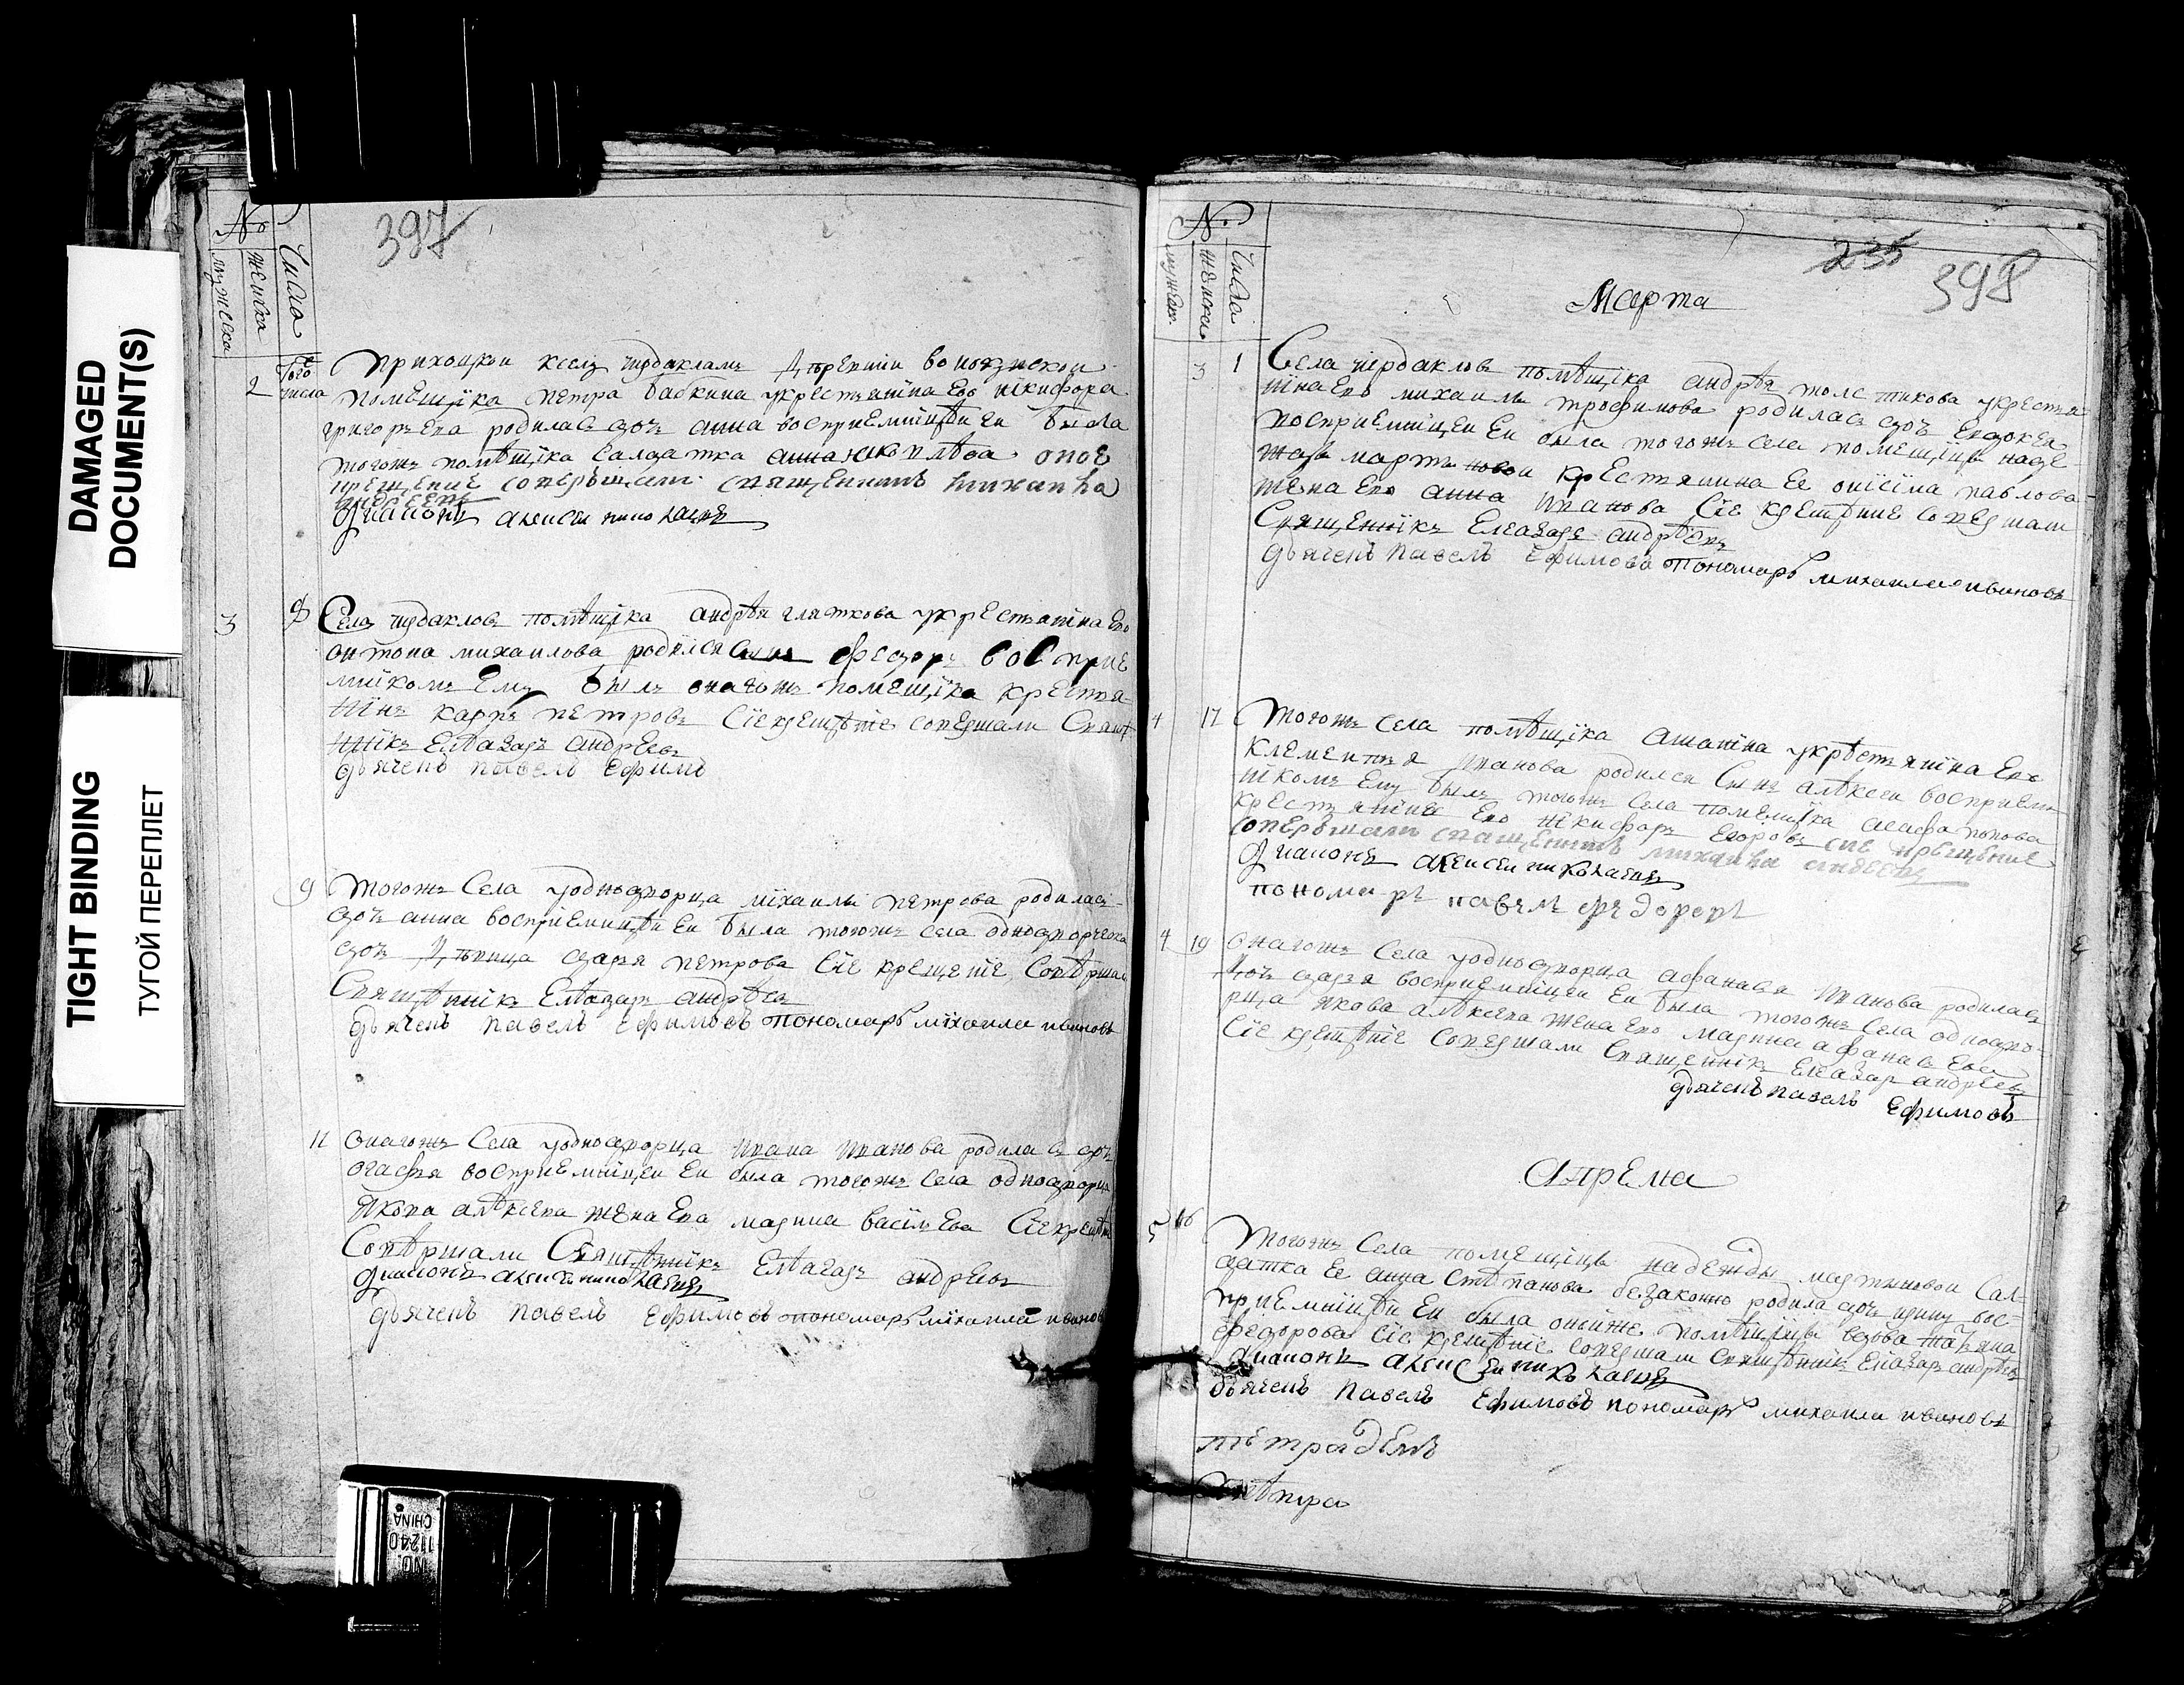 DAMAGED
DOCUMENT(S)
TIGHT BINDING
ТУГОЙ ПЕРЕПЛЕТ
NO.
11240
CHINA
№
мужеска
женска
Числа
397
2
того числа
помещика петра бабкина укрестьянина Ево никифора
григорьева родилась дочь анна восприемницеи еи была
тогожъ помѣщика Салдатка анна оное
крещение совершали священникъ михаила
андреевъ
Диаконъ алексеи николаевъ
3
8
Села помѣщика андрѣя гляткова укрестьянина Ево
антона михаилова родился Сынъ федоръ восприе
мникомъ Ему былъ онагожъ помещика крестья
нинъ карпъ петровъ Сие крещѣние совершали Свящ
нникъ Елѣазаръ андрѣевъ
дьячекъ павелъ Ефимо
9
тогожъ Села уоднодворца михаилы петрова родилась
дочь анна восприемницеи Еи была тогожъ села однодворческа
дочь дѣвица дарья петрова Сие крещение Совѣршали
Священникъ Елѣазаръ андрѣевъ
дьячекъ павелъ Ефимовъ пономарь михаила ивановъ
11
онагожъ Села уоднодворца ивана иванова родилась дочь
агафья восприемницеи Еи была тогожъ Села однодворца
якова алѣксѣева жена Ево марина василъева Сие крещѣние
Совѣршали Священникъ Елѣазаръ андрѣевъ
Диаконъ алексеи николаевъ
дьячекъ павелъ Ефимовъ пономарь михаила ивановъ
№
мужеска
женска
Числа
235
398
Марта
3
1
Села чердаклов помѣщика андрѣя толстикова укрестья
нина Ево михаилы трофимова родилась дочь Евдокея
восприемницеи Еи была тогожъ села помещицы надѣ
жды мартыновои крестьянина Ее онисима павлова
жена Ево анна иванова Сие крещѣние совершали
Священникъ Елеазаръ андрѣевъ
дьячекъ павелъ Ефимовъ пономарь михаила ивановъ
4
17
тогожъ села помѣщика укрѣстьянина Ево
клементья иванова родился Сынъ алѣксеи восприем
никомъ Ему былъ тогожъ Села помещика попова
крестьянинъ Ево никифоръ Егоровъ сие крещение
совершали священникъ михаила андреевъ
Диаконъ алексеи николаевъ
пономарь павелъ федоровъ
4
19
онагожъ Села уоднодворца афанасья иванова родилась
дочь дарья восприемницеи Еи была тогожъ Села однодво
рца якова алѣксѣева жена Ево марина афанасьева
Сие крещѣние совершали Священникъ Елеазар андрѣевъ
дьячекъ павелъ Ефимовъ
Апрелиа
5
16
тогожъ Села помещицы надежды мартыновои Сал
датка Ее анна Стѣпанова беззаконно родила дочь ирину вос
приемницеи Еи была оныяже помѣщицы вдова татьяна
федорова Сие крещѣние совершали священникъ Елеазаръ андрѣевъ
Диаконъ алексеи николаевъ
дьячекъ павелъ Ефимовъ пономарь михаила ивановъ